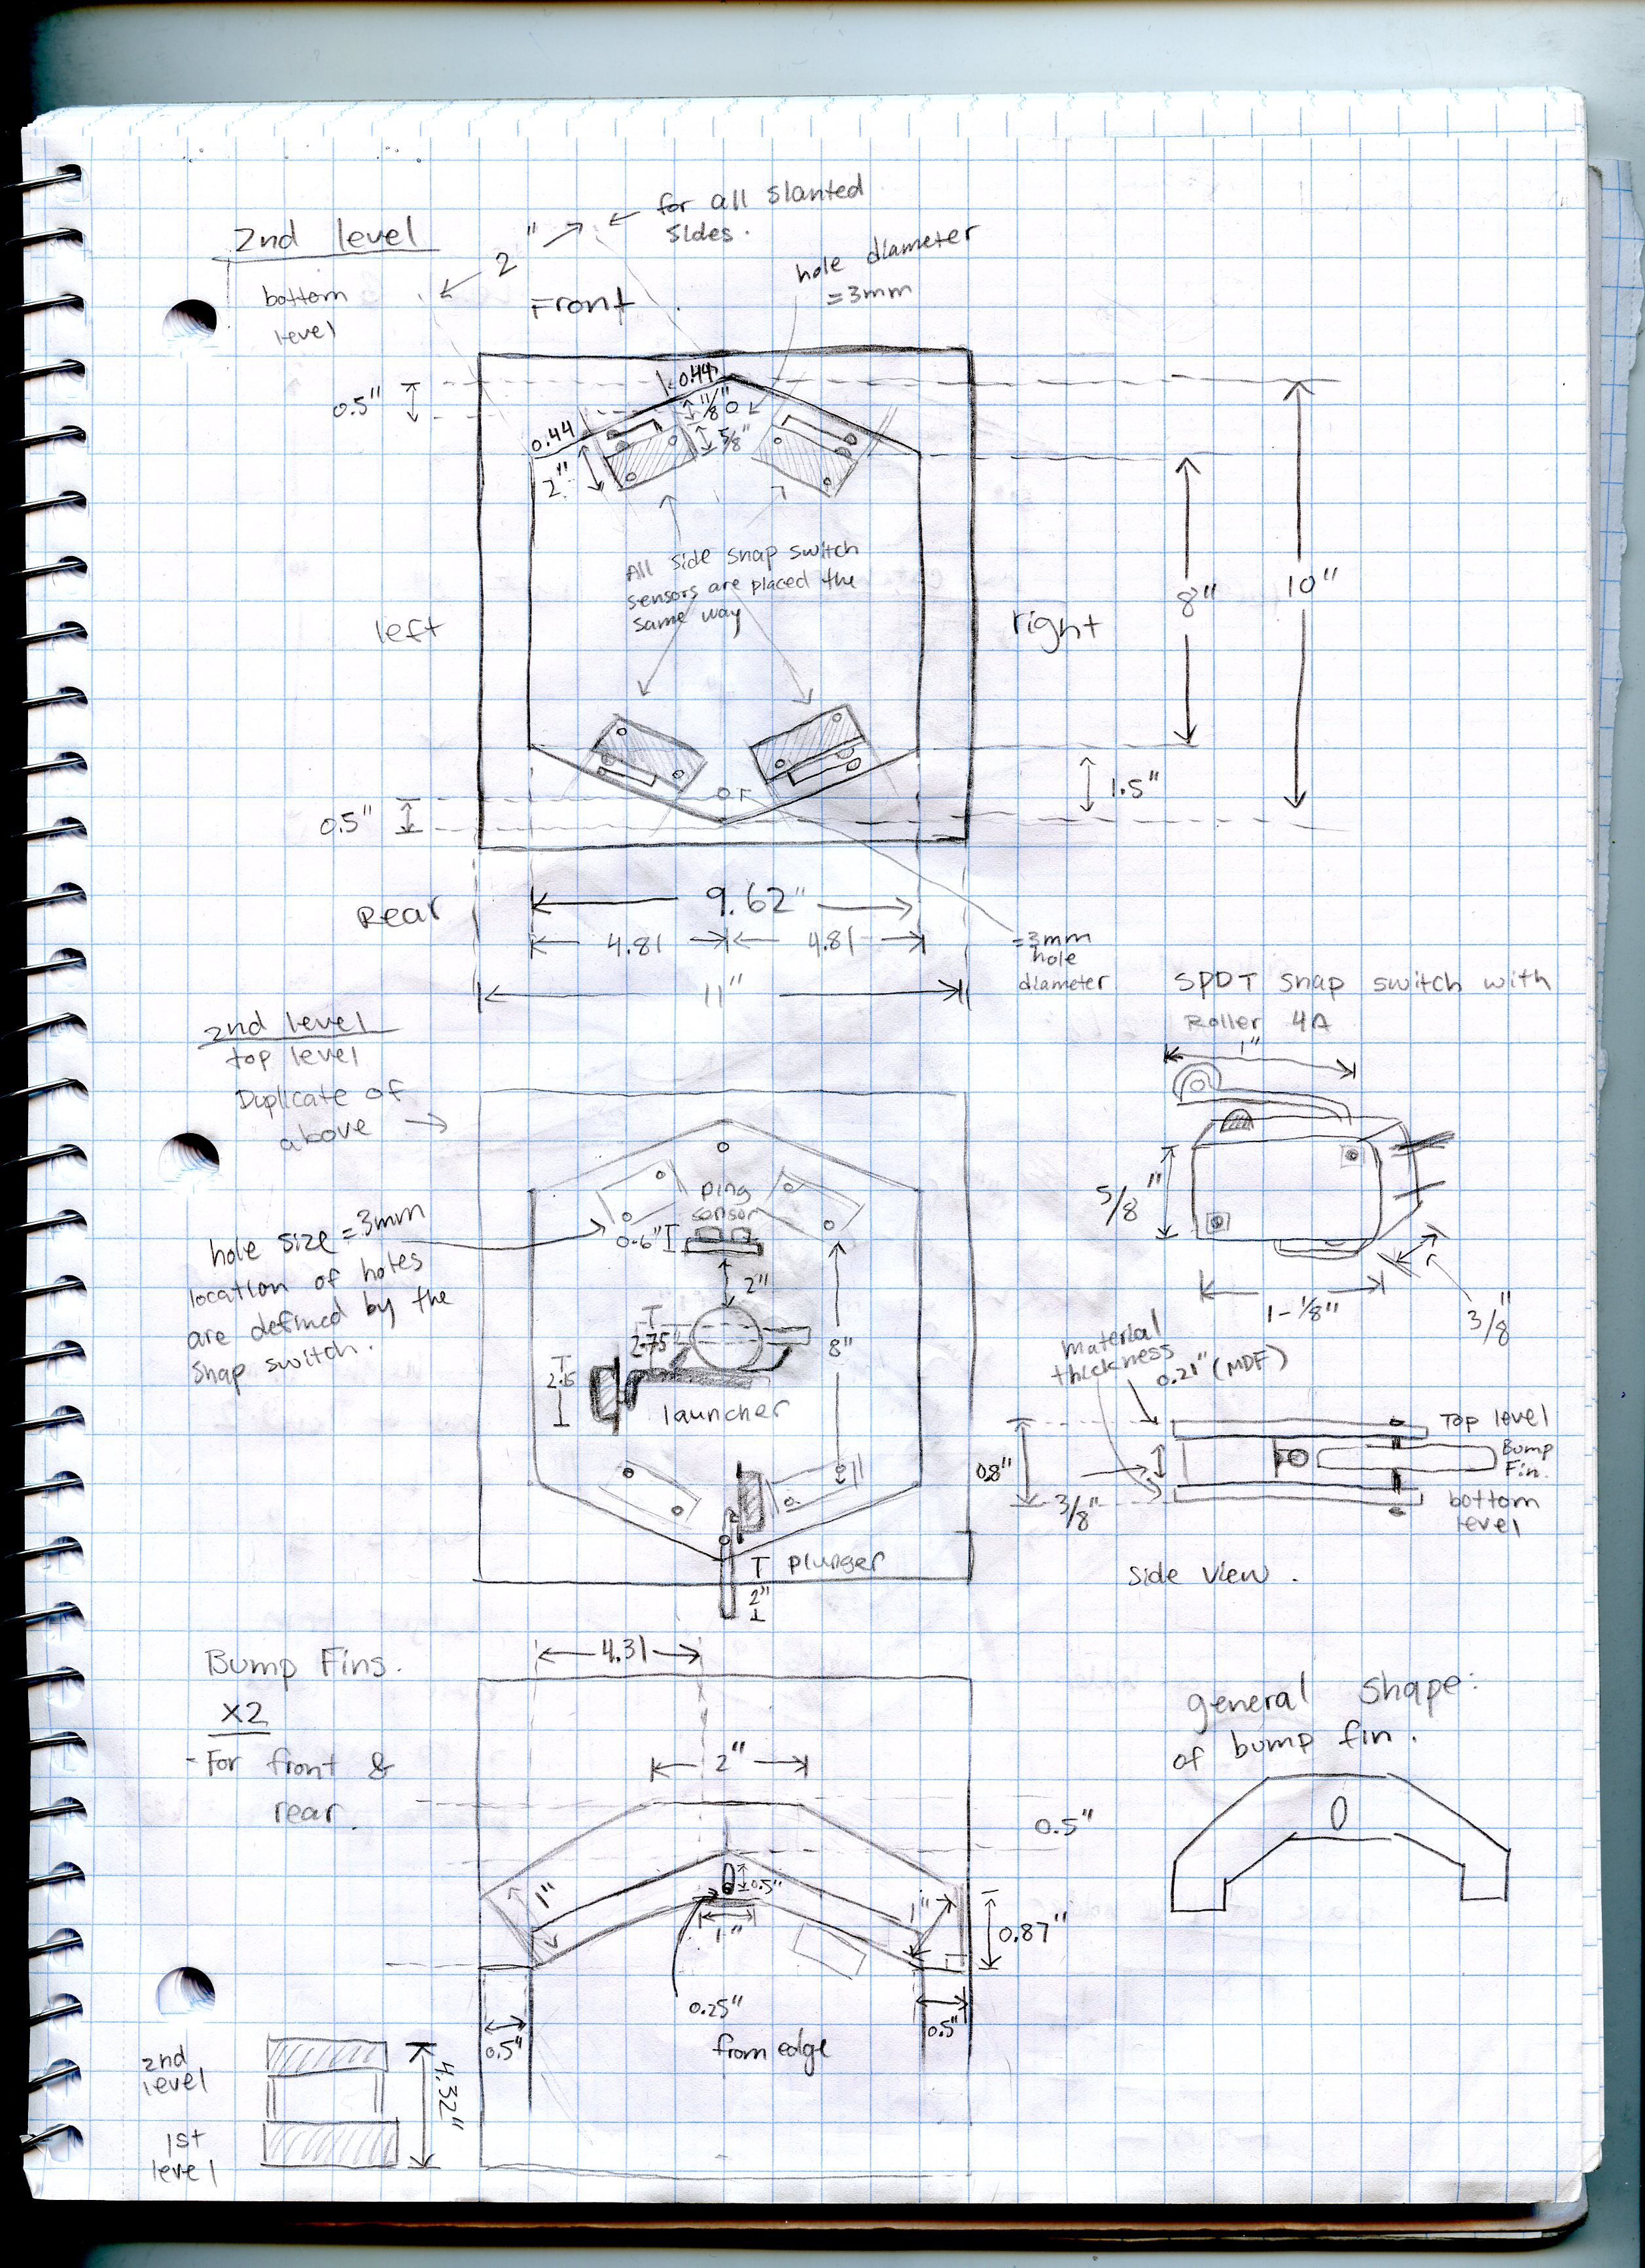 2nd level
bottom
level
2"
for all slanted
sides.
hole diameter
=3mm
Front
0.5"
0.44
0.44
2"
5/8"
All side snap switch
sensors are placed the
same way
left
right
8"
10"
1.5"
0.5"
Rear
9.62"
4.81
4.81
11"
=3mm
hole
diameter
2nd level
top level
Duplicate of
above
hole size = 3mm
location of holes
are defined by the
snap switch.
ping
sensor
0.6"
2"
2.75
8"
launcher
plunger
2"
SPDT snap switch with
Roller 4A
1"
5/8"
1-1/8"
3/8"
material
thickness
0.21" (MDF)
Top level
Bump
Fin.
bottom
level
0.8"
3/8"
side view.
Bump Fins.
x2
- For front &
rear.
4.31
2"
0.5"
1"
0.5"
1"
1"
0.87"
0.25"
from edge
0.5"
0.5"
general shape:
of bump fin.
2nd
level
1st
level
4.32"